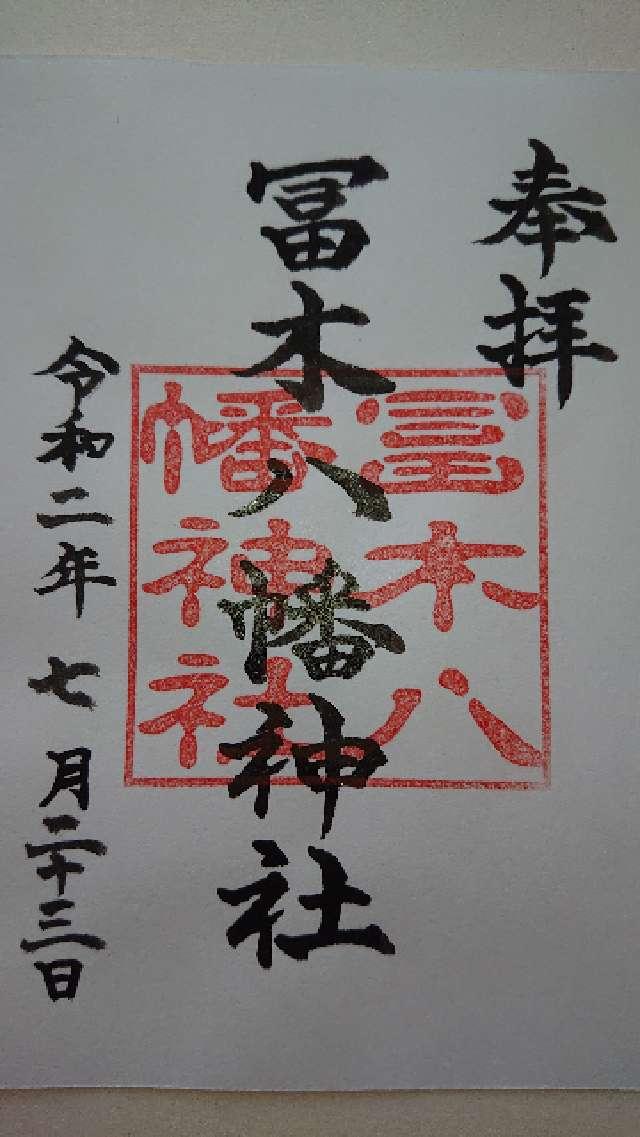 奉拝
冨木八幡神社
冨木八
幡神社
令和二年七月二十三日